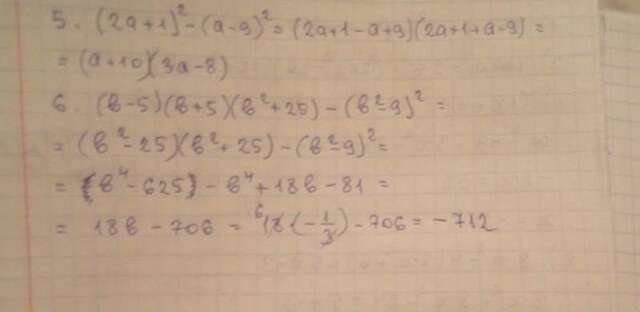 5. (2a+1)² - (a-9)² = (2a+1-a+9)(2a+1+a-9) =
= (a+10)(3a-8)
6. (в-5)(в+5)(в²+25) - (в²-9)² =
= (в²-25)(в²+25) - (в²-9)² =
= (в⁴-625) - в⁴+18в-81 =
= 18в - 706 = ⁶18(-1/3) - 706 = -712